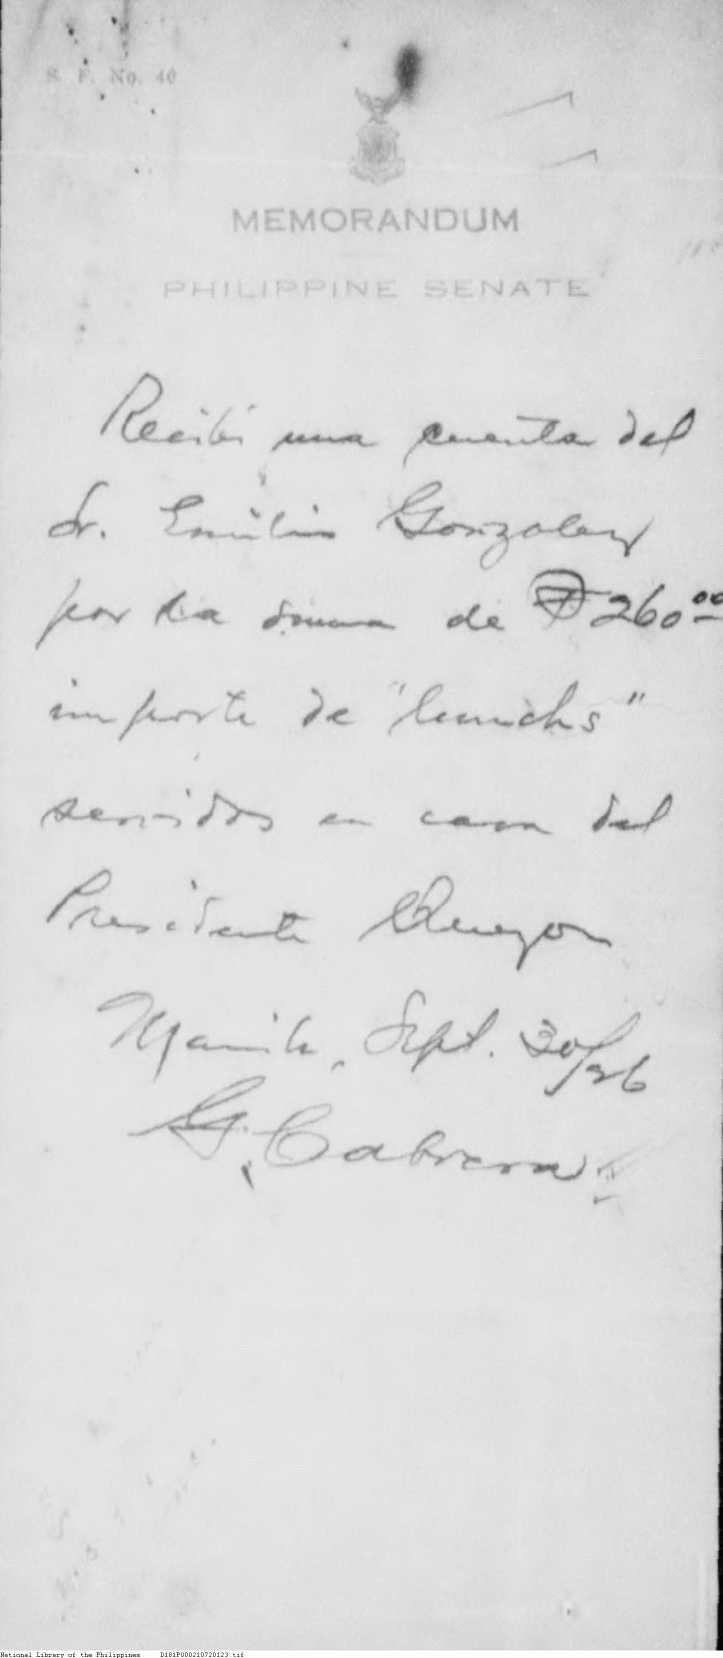 S. F. No. 40
MEMORANDUM
PHILIPPINE SENATE
Recibí una cuenta del
Sr. Emilio Gonzalez
por la suma de ₱260.00
importe de "lunchs"
servidos en casa del
Presidente Quezon
Manila, Sept. 30/26
G. Cabrera
National Library of the Philippines D181P000210720123.tif